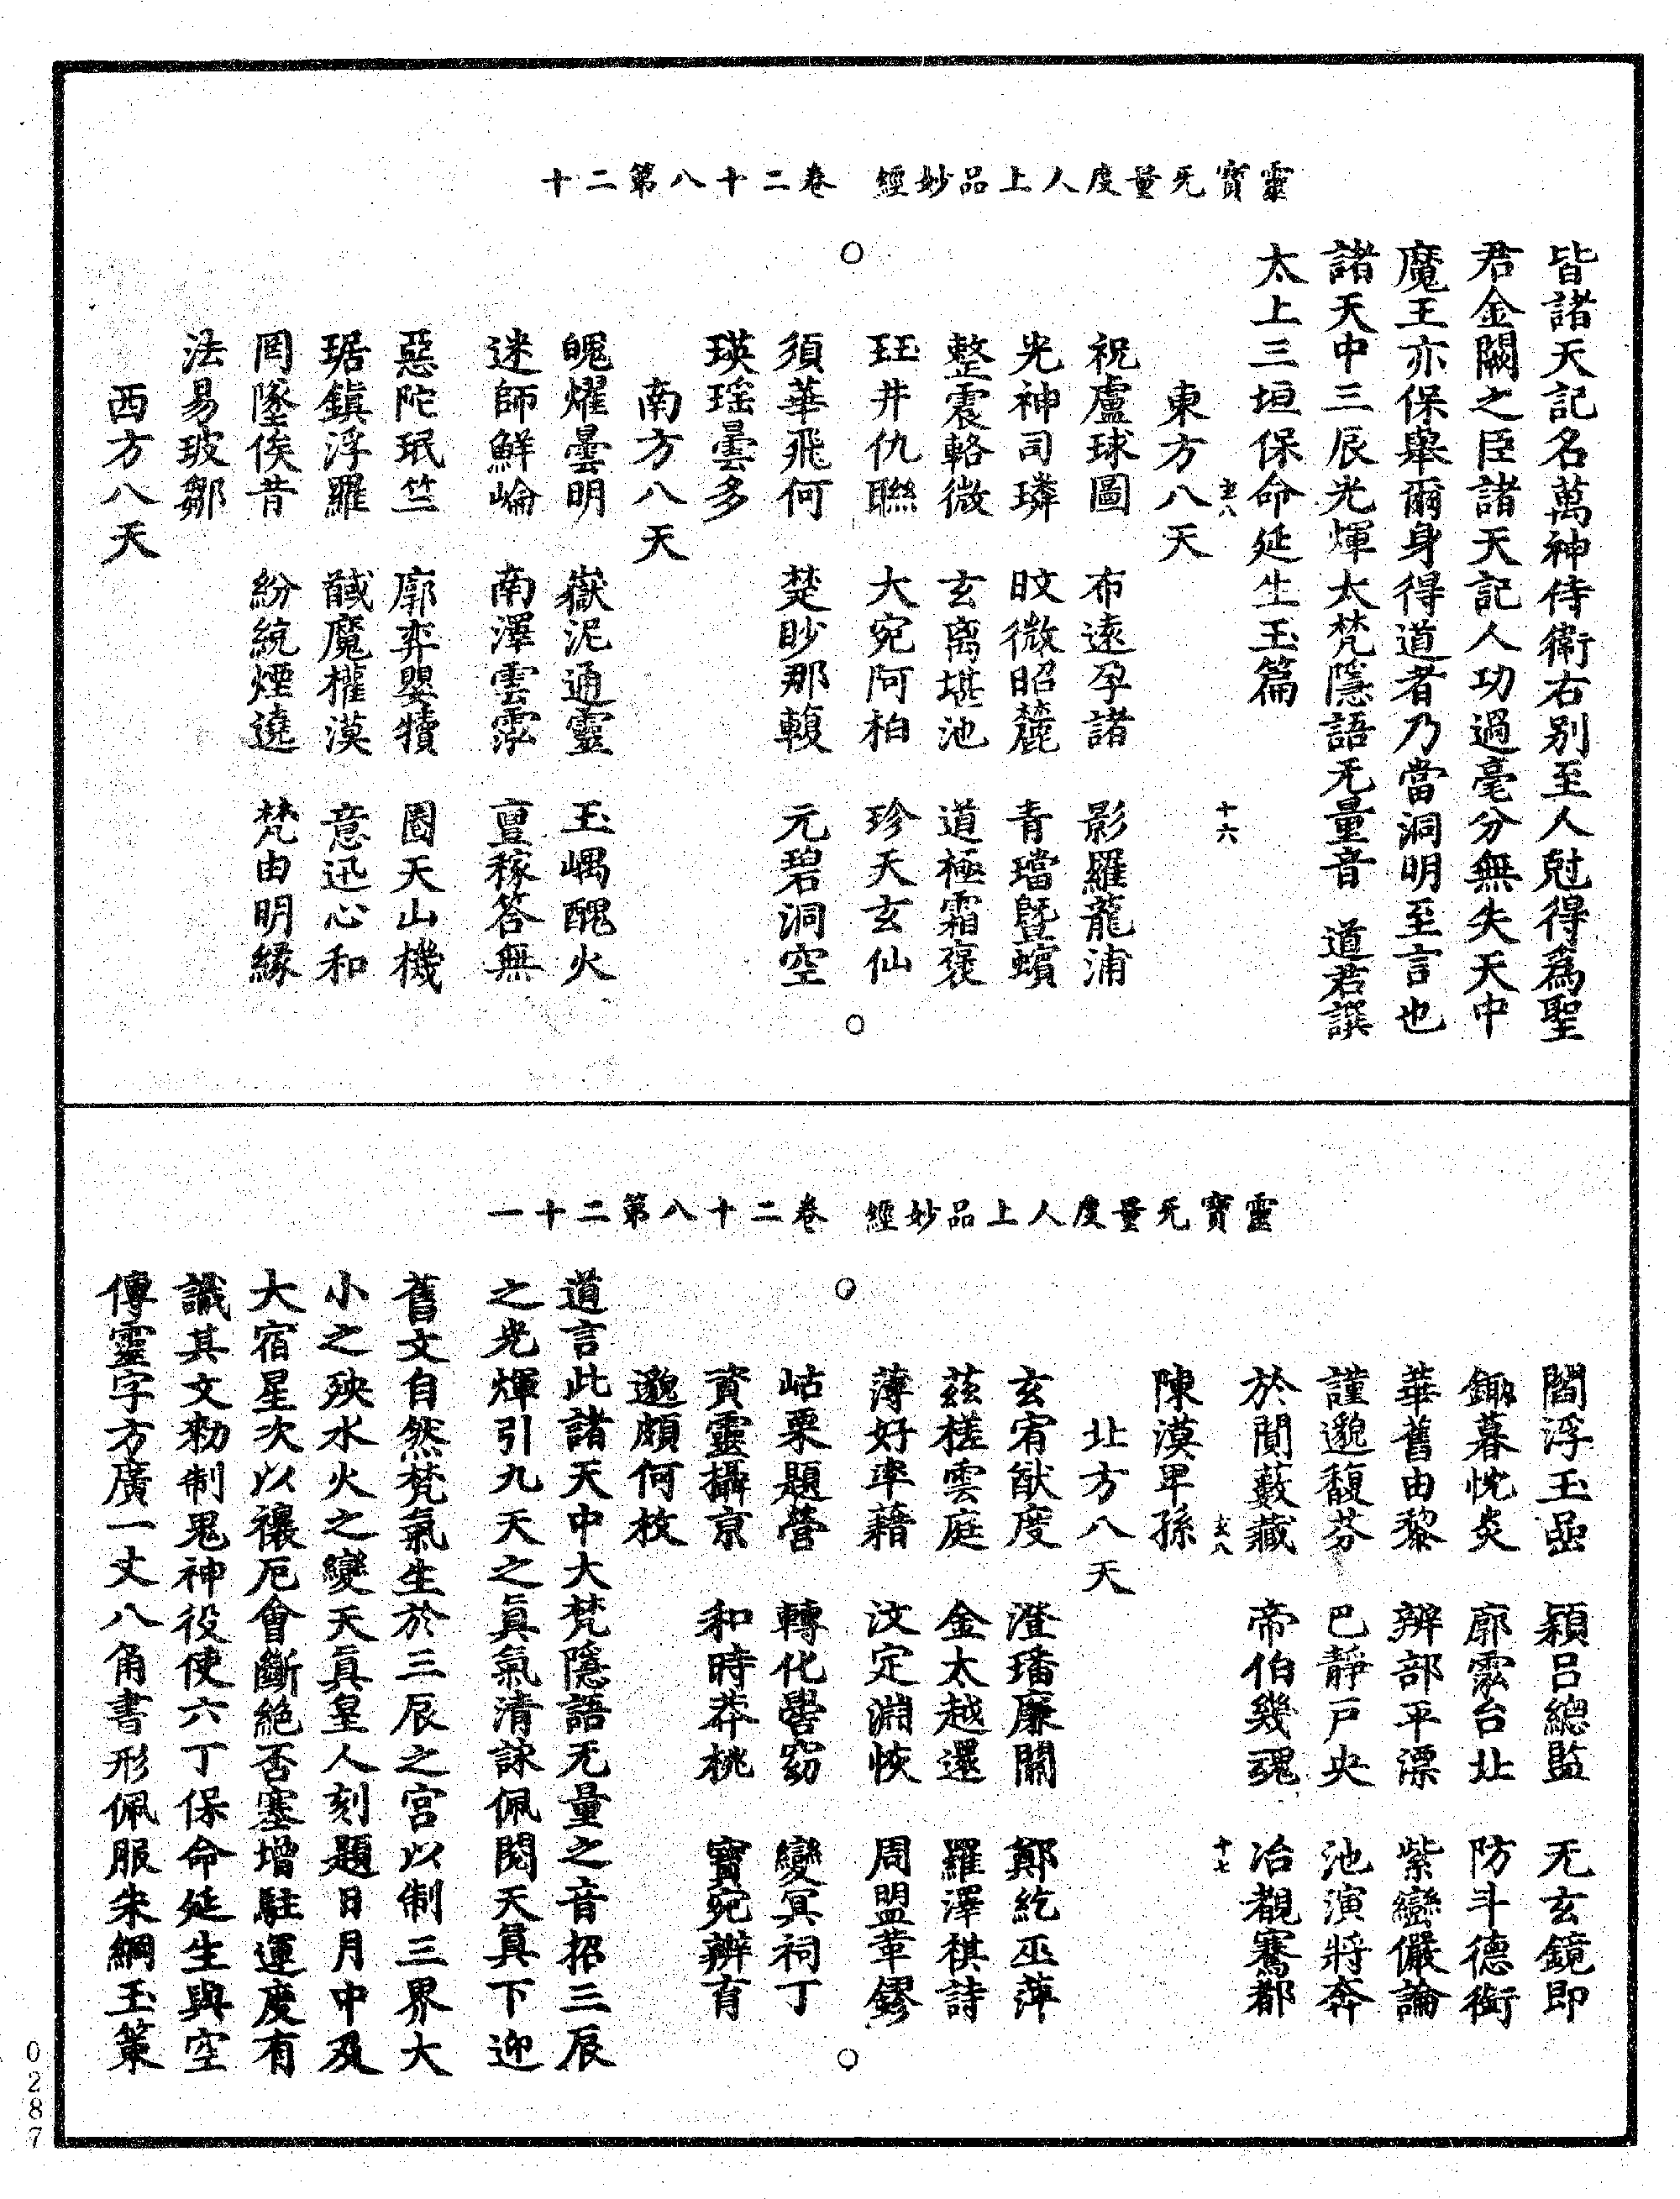 靈寶无量度人上品妙經 卷二十八第二十
皆諸天記名萬神侍衛右别至人尅得爲聖
君金闕之臣諸天記人功過毫分無失天中
魔王亦保舉爾身得道者乃當洞明至言也
諸天中三辰光輝太梵隱語无量音 道君譔
太上三垣保命延生玉篇
玄八 十六
東方八天
祝盧球圖 布遠孕諸 影羅龍浦
光神司璘 旼微昭麓 青璫暨蠙
整震輅微 玄离堪池 道極霜褒
玨井仇聮 大宛阿柏 珍天玄仙
須華飛何 楚眇那輹 元碧洞空
瑛瑶曇多
南方八天
魄燿曇明 嶽泥通靈 玉嵎醜火
迷師鮮崘 南澤雲霐 亶稼答無
惡陀珉竺 廓弈嬰犢 圂天山機
琚鎮浮羅 馘魔權漠 意迅心和
罔墜俟昔 紛統煙遶 梵由明縁
法易玻鄒
西方八天
靈寶无量度人上品妙經 卷二十八第二十一
閻浮玉嵒 潁吕總監 无玄鏡即
鋤暮怳炎 廓雲台北 防斗德銜
華舊由黎 辨部平漂 紫巒儼論
謹邈馥芬 巴靜戸央 池演將奔
於閒藪藏 帝伯幾魂 冶覩騫都
玄八 十七
陳漠早孫
北方八天
玄宥猷度 澄璠廉關 鄭紇巫萍
兹槎雲庭 金太越還 羅澤祺詩
薄好率藉 汶定淵恢 周盟葦鏐
岵栗題營 轉化礐窈 變冥祠丁
資靈攝京 和時莽桃 寶宛辨育
邈頗何枚
道言此諸天中大梵隱語无量之音招三辰
之光輝引九天之真氣清詠佩閲天真下迎
舊文自然梵氣生於三辰之宫以制三界大
小之殃水火之變天真皇人刻題日月中及
大宿星次以禳厄會斷絶否塞增駐運度有
識其文勑制鬼神役使六丁保命延生與空
傳靈字方廣一丈八角書形佩服朱綱玉策
0287